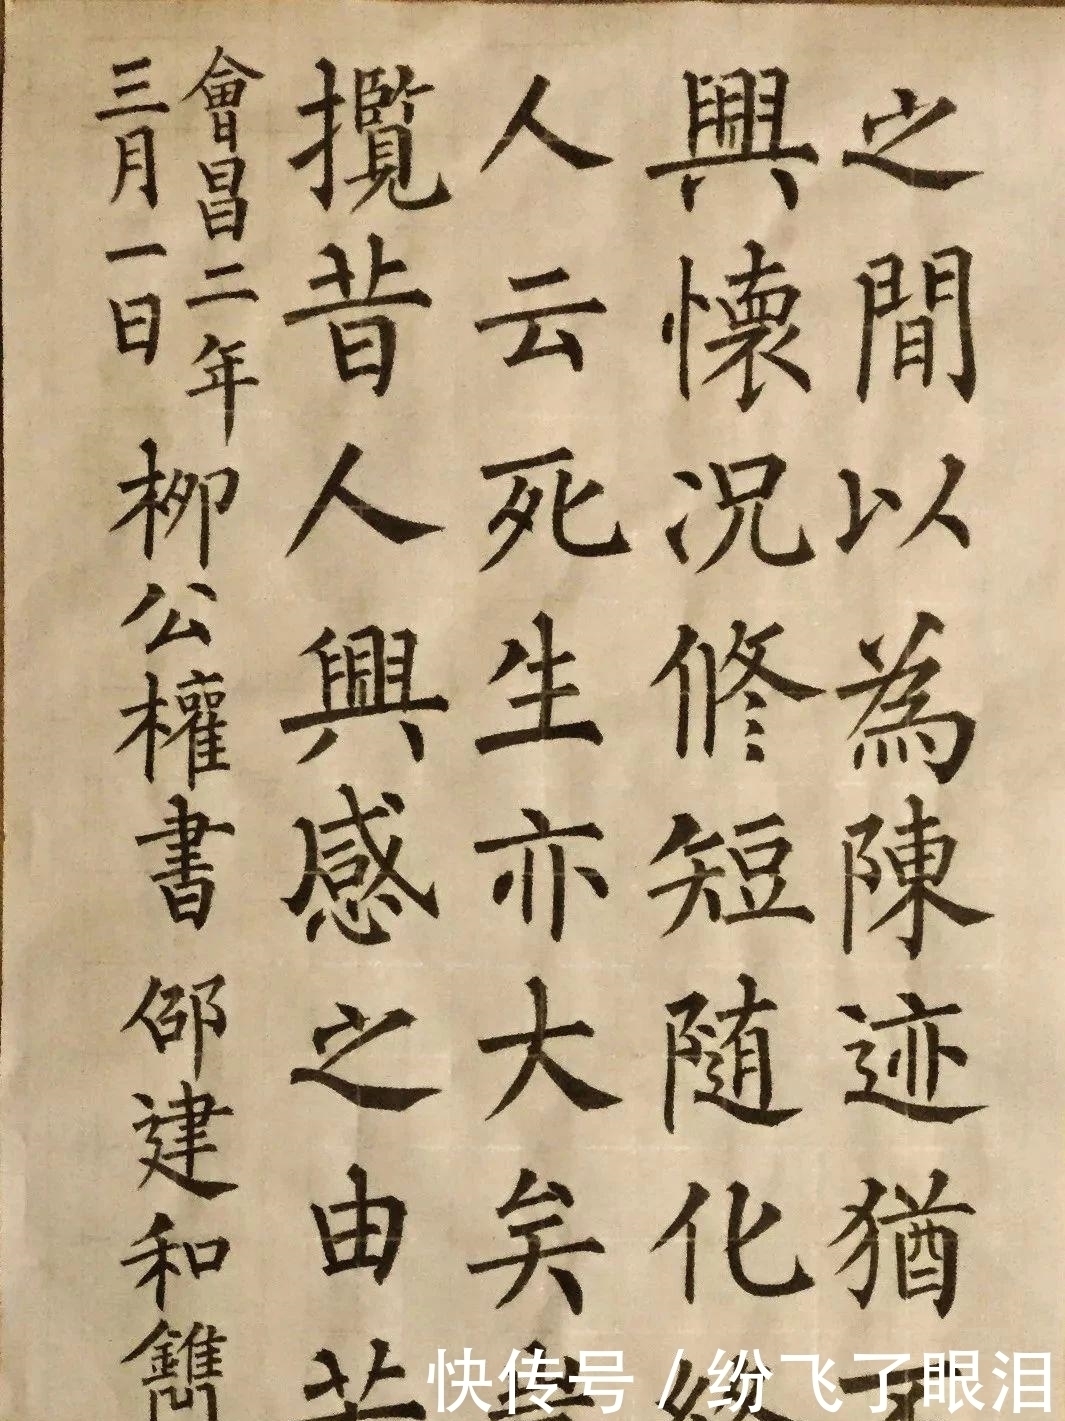 之間以為陳迹猶不
興懷况脩短隨化終
人云死生亦大矣豈
攬昔人興感之由若
會昌二年
三月一日
柳公權書 邵建和鐫
快传号 / 纷飞了眼泪